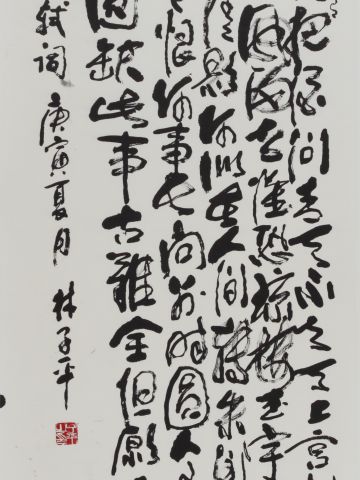 把酒问青天不知天上宫
归去唯恐琼楼玉宇
清影何似在人间转朱阁
恨何事长向别时圆人
圆缺此事古難全但愿
轼词 庚寅夏月 林子平